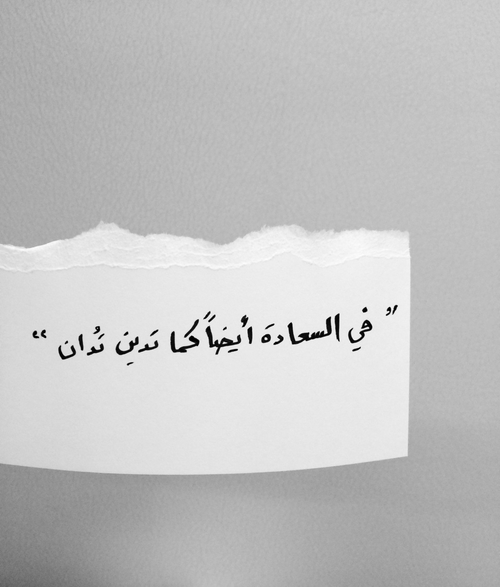 " في السعادة أيضاً كما تدين تُدان "